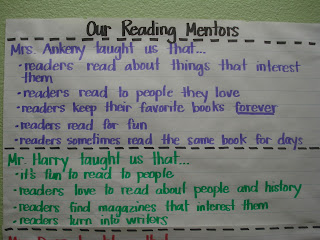 Our Reading Mentors
Mrs. Ankeny taught us that...
-readers read about things that interest
them
-readers read to people they love
-readers keep their favorite books forever
-readers read for fun
-readers sometimes read the same book for days
Mr. Harry taught us that...
-it's fun to read to people
-readers love to read about people and history
-readers find magazines that interest them
-readers turn into writers